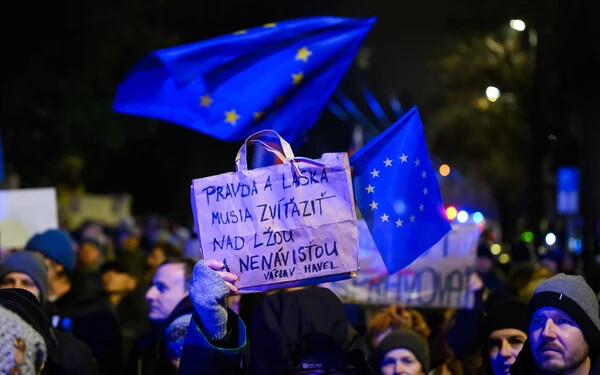 PRAVDA A LÁSKA
MUSIA ZVÍŤAZIŤ
NAD LŽOU
A NENÁVISŤOU
VÁCLAV HAVEL